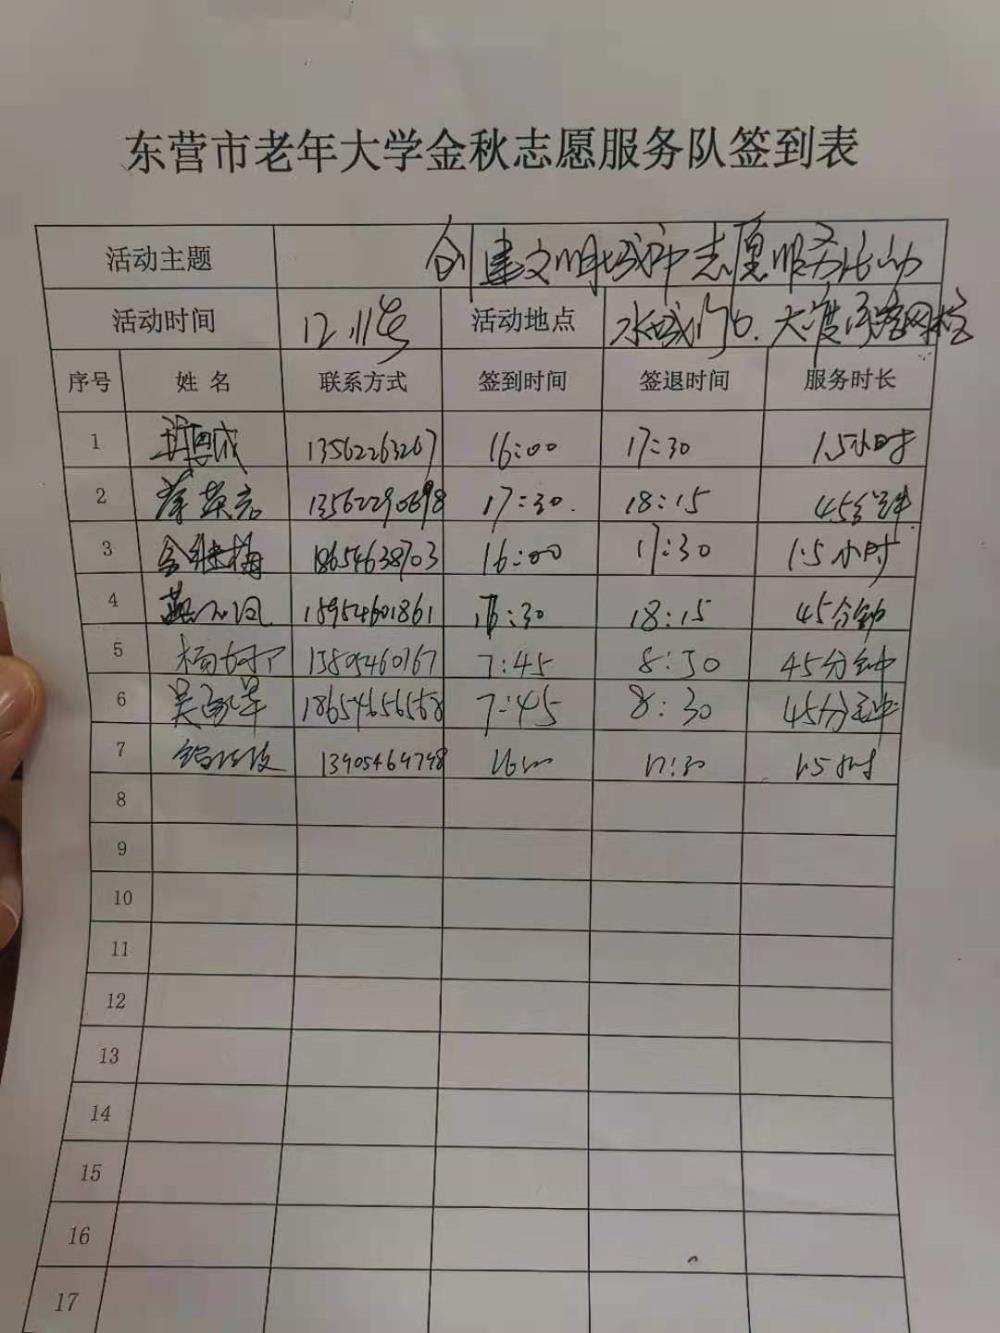 东营市老年大学金秋志愿服务队签到表
活动主题 创建文明城市志愿服务活动
活动时间 12.11号 活动地点 水城
序号 姓名 联系方式 签到时间 签退时间 服务时长
1 13562263267 16:00 17:30 1.5小时
2 薛英岩 13562290698 17:30. 18:15 45分钟
3 金继梅 18654638703 16:00 17:30 1.5小时
4 15954601861 18:15 45分钟
5 7:45 8:30 45分钟
6 18654656568 7:45 8:30 45分钟
7 13905464798 17:30 1.5小时
8
9
10
11
12
13
14
15
16
17